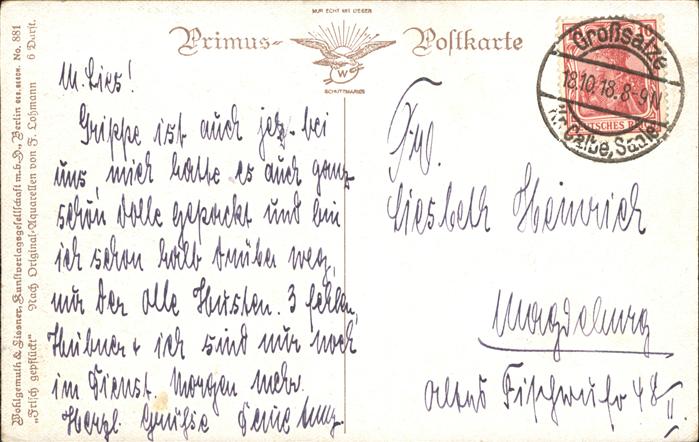 NUR ECHT MIT DIESER
Primus-Postkarte
W
SCHUTZMARKE
Großsalze
18.10.18. 8-9N
(Kr. Calbe, Saale)
DEUTSCHES REICH
M. Lies!
Grippe ist auch jez. bei
uns, mich hatte es auch ganz
schön dolle gepackt und bin
ich schon halb drüber weg,
nur der olle Husten. 3 fehlen,
Hübner + ich sind nur noch
im Dienst. Morgen mehr.
Herzl. Grüße Deine
Frl.
Liesbeth Heinrich
Magdeburg
Altes Fischerufer 48 II.
Wohlgemuth & Lissner, Kunstverlagsgesellschaft m.b.H., Berlin No. 881
"Frisch gepflückt" Nach Original-Aquarellen von F. Lohmann 6 Darst.